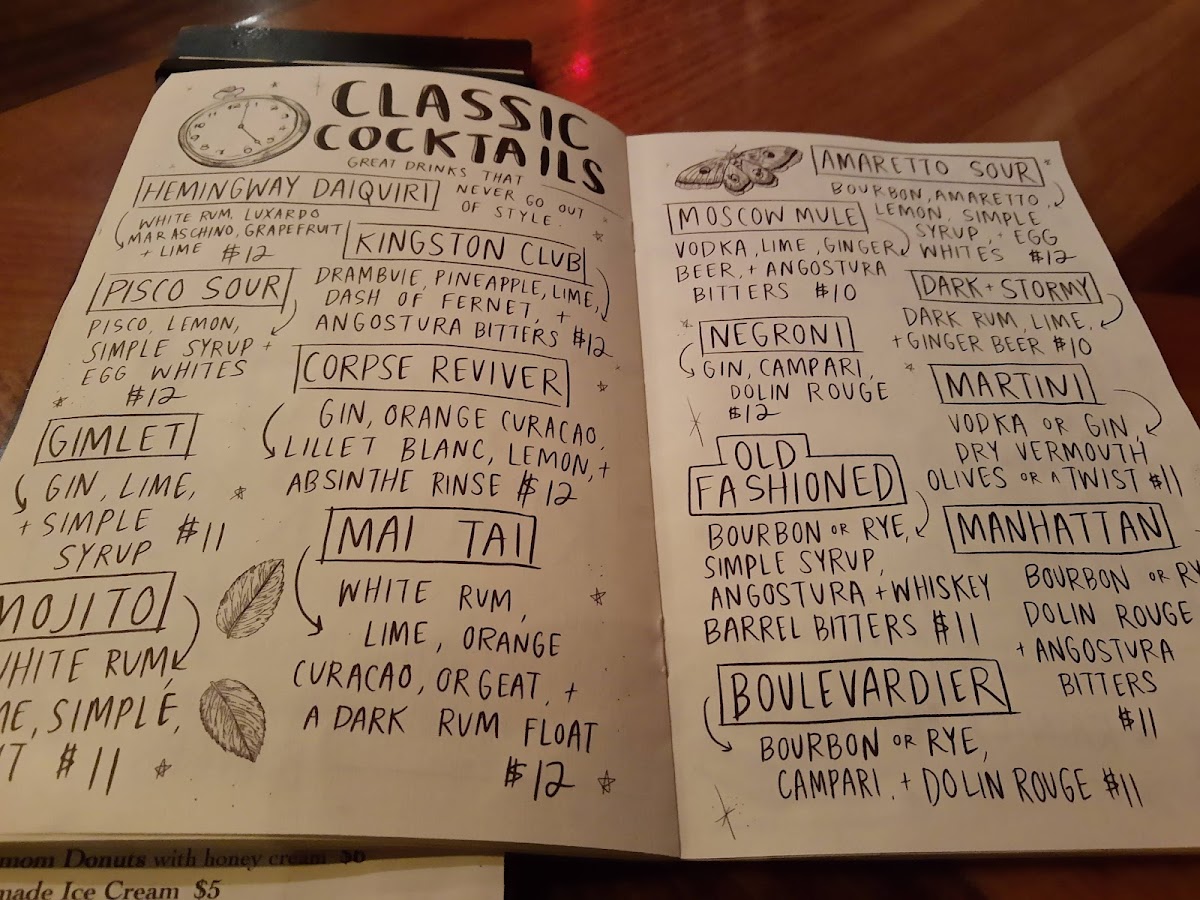 CLASSIC
COCKTAILS
GREAT DRINKS THAT
NEVER GO OUT
OF STYLE.
HEMINGWAY DAIQUIRI
WHITE RUM, LUXARDO
MARASCHINO, GRAPEFRUIT
+ LIME $12
KINGSTON CLUB
DRAMBUIE, PINEAPPLE, LIME,
DASH OF FERNET, +
ANGOSTURA BITTERS $12
PISCO SOUR
PISCO, LEMON,
SIMPLE SYRUP +
EGG WHITES
$12
CORPSE REVIVER
GIN, ORANGE CURACAO,
LILLET BLANC, LEMON, +
ABSINTHE RINSE $12
GIMLET
GIN, LIME,
+ SIMPLE
SYRUP $11
MAI TAI
WHITE RUM,
LIME, ORANGE
CURACAO, ORGEAT, +
A DARK RUM FLOAT
$12
MOJITO
WHITE RUM,
SIMPLE,
$11
AMARETTO SOUR
BOURBON, AMARETTO,
LEMON, SIMPLE
SYRUP, + EGG
WHITES $12
MOSCOW MULE
VODKA, LIME, GINGER
BEER, + ANGOSTURA
BITTERS $10
DARK + STORMY
DARK RUM, LIME,
+ GINGER BEER $10
NEGRONI
GIN, CAMPARI,
DOLIN ROUGE
$12
MARTINI
VODKA OR GIN,
DRY VERMOUTH
OLIVES OR A TWIST $11
OLD
FASHIONED
BOURBON OR RYE,
SIMPLE SYRUP,
ANGOSTURA + WHISKEY
BARREL BITTERS $11
MANHATTAN
BOURBON OR RY
DOLIN ROUGE
+ ANGOSTURA
BITTERS
$11
BOULEVARDIER
BOURBON OR RYE,
CAMPARI, + DOLIN ROUGE $11
Donuts with honey cream
made Ice Cream $5